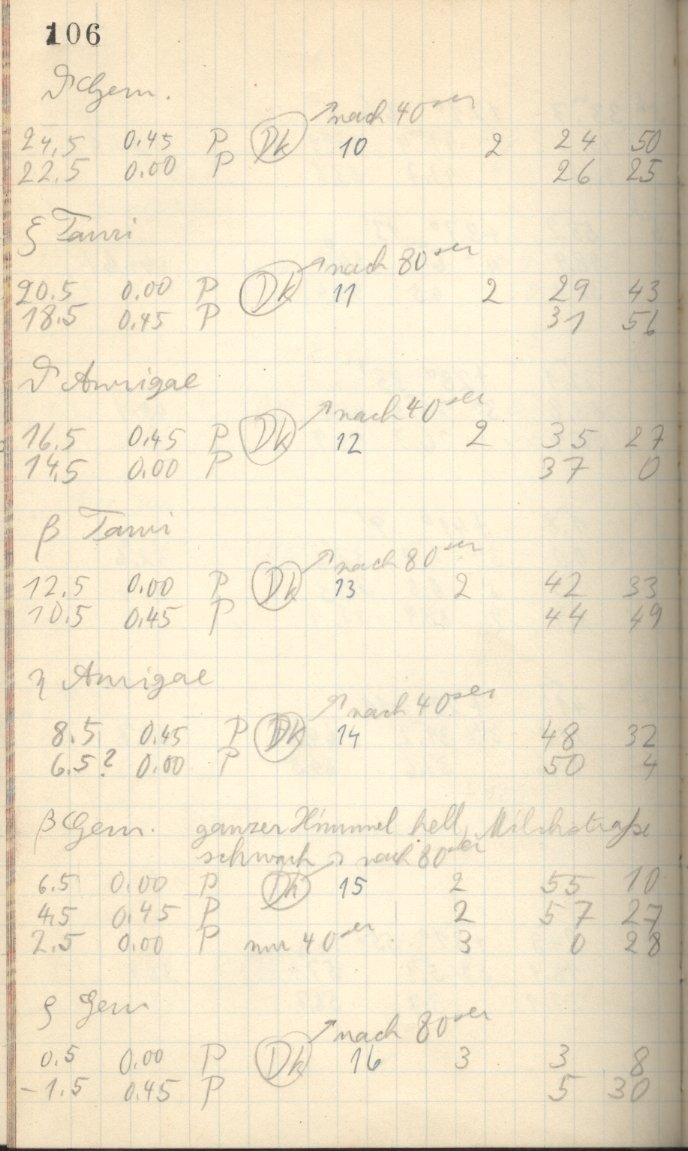 106
ϑ Gem.
nach 40ser
24,5 0.45 P Dk 10 2 24 50
22.5 0.00 P 26 25
ξ Tauri
nach 80ser
20.5 0.00 P Dk 11 2 29 43
18.5 0.45 P 31 56
ϑ Aurigae
nach 40ser
16.5 0.45 P Dk 12 2 35 27
14.5 0.00 P 37 0
β Tauri
nach 80ser
12.5 0.00 P Dk 13 2 42 33
10.5 0.45 P 44 49
η Aurigae
nach 40ser
8.5 0.45 P Dk 14 48 32
6.5? 0.00 P 50 4
β Gem. ganzer Himmel hell, Milchstraße
schwach nach 80ser
6.5 0.00 P Dk 15 2 55 10
4.5 0.45 P 2 57 27
2.5 0.00 P nur 40er 3 0 28
Gem
nach 80ser
0.5 0.00 P Dk 16 3 3 8
-1.5 0.45 P 5 30